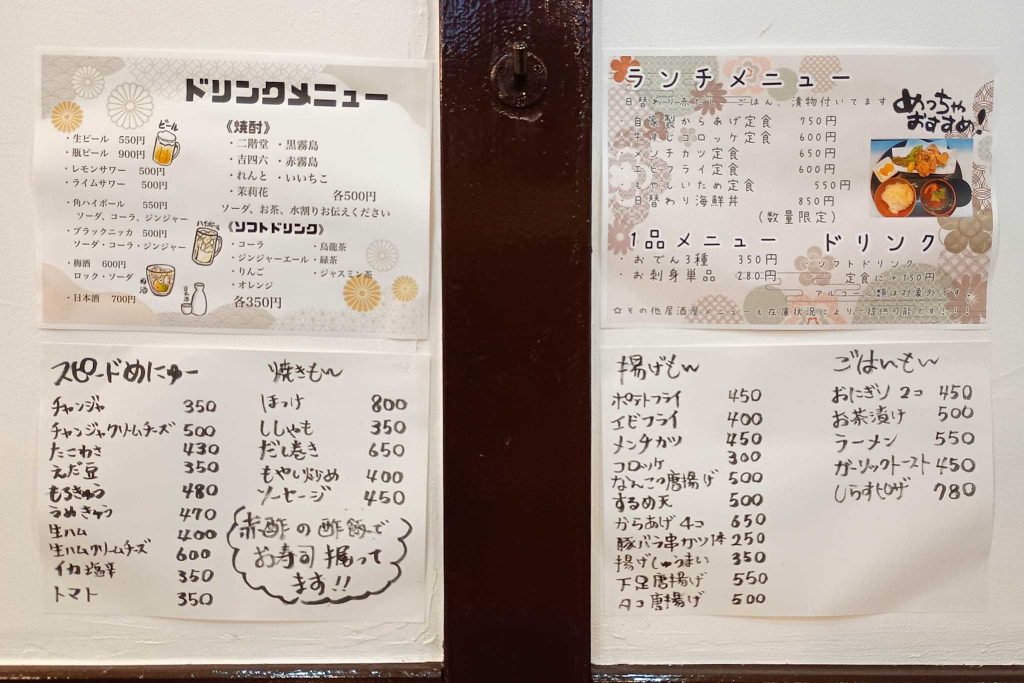 ドリンクメニュー
・生ビール 550円
・瓶ビール 900円
ビール
・レモンサワー 500円
・ライムサワー 500円
・角ハイボール 550円
ソーダ、コーラ、ジンジャー
・ブラックニッカ 500円
ソーダ・コーラ・ジンジャー
ハイボール
・梅酒 600円
ロック・ソーダ
梅酒
・日本酒 700円
日本酒
《焼酎》
・二階堂 ・黒霧島
・吉四六 ・赤霧島
・れんと ・いいちこ
・茉莉花 各500円
ソーダ、お茶、水割りお伝えください
《ソフトドリンク》
・コーラ ・烏龍茶
・ジンジャーエール ・緑茶
・りんご ・ジャスミン茶
・オレンジ
各350円
ランチメニュー
日替わり赤だし、ごはん、漬物付いてます
めっちゃ
おすすめ!
自家製からあげ定食 750円
牛すじコロッケ定食 600円
メンチカツ定食 650円
エビフライ定食 600円
もやしいため定食 550円
日替わり海鮮丼 850円
(数量限定)
1品メニュー ドリンク
おでん3種 350円
お刺身単品 280円
ソフトドリンク
定食に+150円
アルコール類は対象外です
☆その他居酒屋メニューも在庫状況によりご提供可能です!!!
スピードめにゅー
チャンジャ 350
チャンジャクリームチーズ 500
たこわさ 430
えだ豆 350
もろきゅう 480
うめきゅう 470
生ハム 400
生ハムクリームチーズ 600
イカ塩辛 350
トマト 350
焼きもん
ほっけ 800
ししゃも 350
だし巻き 650
もやし炒め 400
ソーセージ 450
赤酢の酢飯で
お寿司握って
ます!!
揚げもん
ポテトフライ 450
エビフライ 400
メンチカツ 450
コロッケ 300
なんこつ唐揚げ 500
するめ天 500
からあげ4コ 650
豚バラ串カツ1本 250
揚げしゅうまい 350
下足唐揚げ 550
タコ唐揚げ 500
ごはんもん
おにぎり2コ 450
お茶漬け 500
ラーメン 550
ガーリックトースト 450
しらすピザ 780